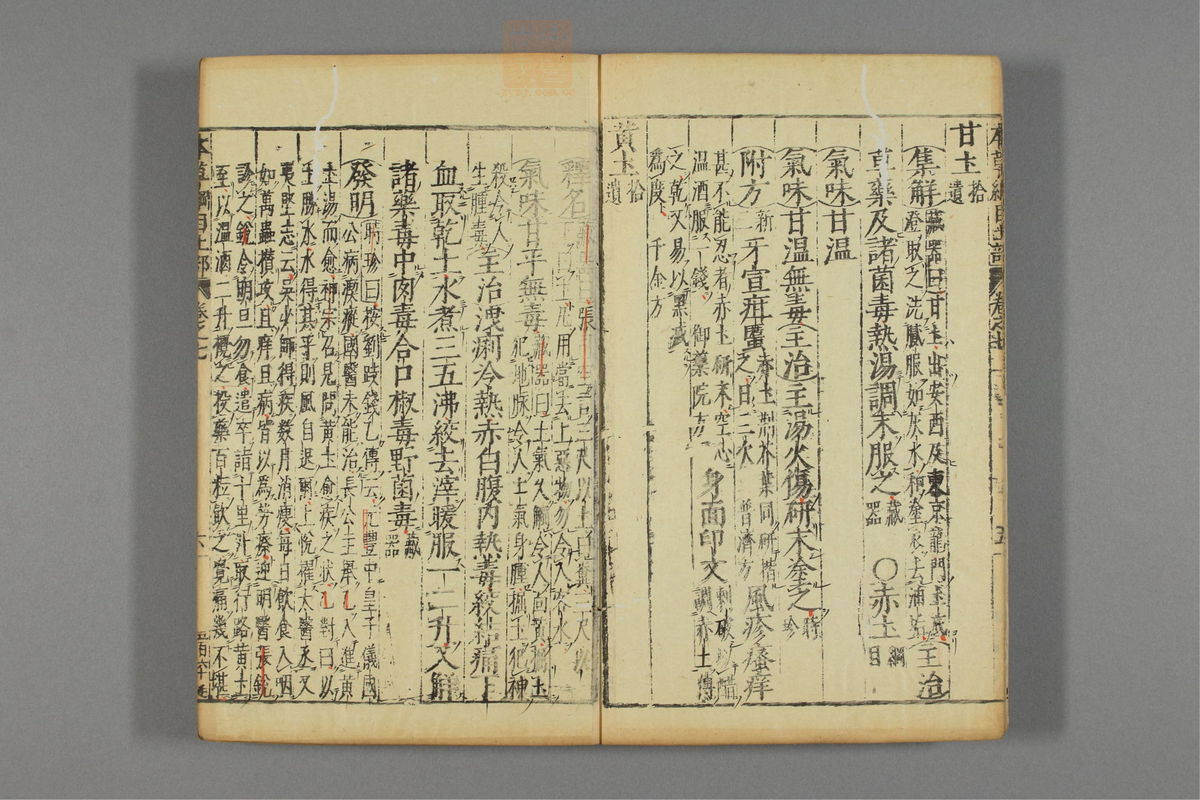 本草綱目土部 卷之七 五
甘土 拾遺
集解 藏器曰甘土出安西及東京龍門土底澄取之洗膩服如灰水和塗衣上油
主治
草藥及諸菌毒熱湯調末服之 藏器 〇赤土 綱目
氣味甘溫
氣味甘溫無毒 主治主湯火傷研末塗之 時珍
附方 新二 牙宣疳䘌 赤土荆芥葉同研揩之日三次 普濟方 風疹瘙痒
甚不能忍者赤土研末空心溫酒服一錢 御藥院方 身面印文 刺破以醋調赤土傅
之乾又易以黑滅為度 千金方
黃土 拾遺
釋名
氣味甘平無毒 藏器曰土氣久觸令人面黃掘土犯地脉令人上氣身腫掘土犯神
殺令人生腫毒 主治洩痢冷熱赤白腹內熱毒絞結痛下
血取乾土水煮三五沸絞去滓暖服一二升入解
諸藥毒中肉毒合口椒毒野菌毒 藏器
發明 時珍曰按劉跂錢乙傳云元豐中皇子儀國公病瘈瘲國醫未能治長公主舉乙入進黃
土湯而愈神宗召見問黃土愈疾之狀乙對曰以土勝水水得其平則風自退爾上悅擢太醫丞又
夷堅志云吳少師得疾數月消瘦每日飲食入咽如萬蟲攢攻且痒且痛皆以為勞瘵迎明醫張銳
診之銳令明旦勿食遣卒詣十里外取行路黃土至以溫酒二升攪之投藥百粒飲之覺痛幾不堪
本草綱目土部 卷之七 六